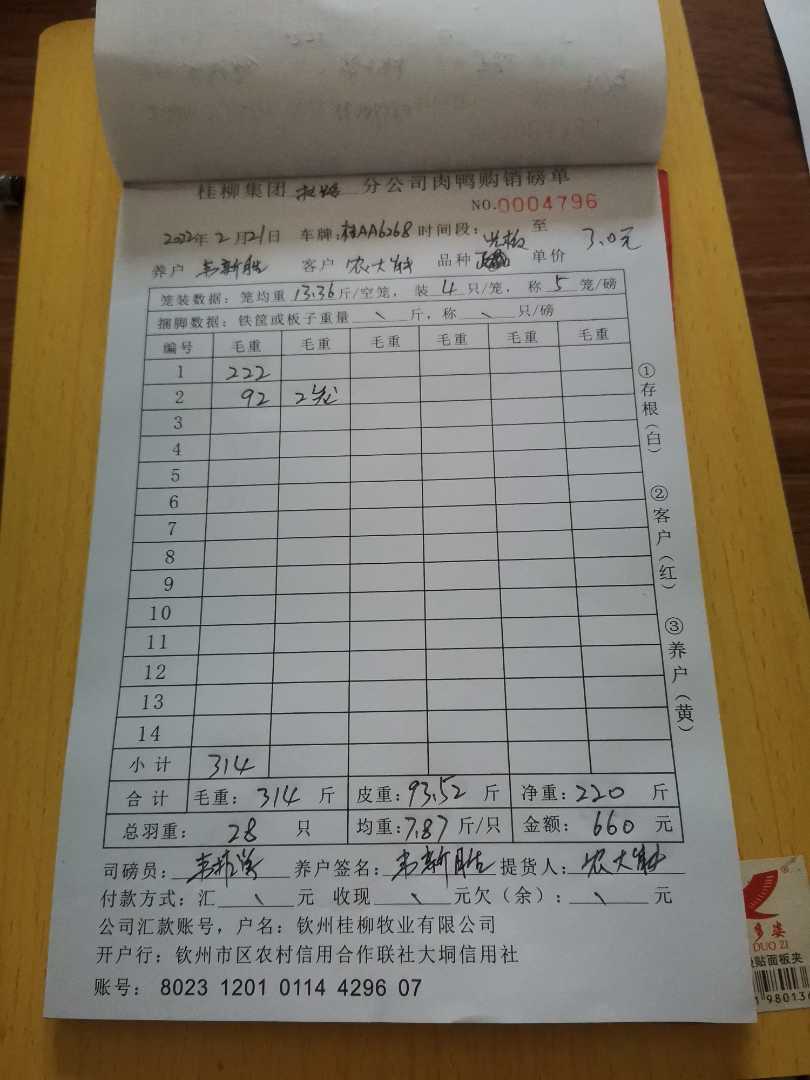 桂柳集团 分公司肉鸭购销磅单
NO.0004796
2022年2月21日 车牌:桂AA6268 时间段: 至
养户 韦新胜 客户 农大 品种 单价 3.0元
笼装数据:笼均重 13.36 斤/空笼, 装 4 只/笼, 称 5 笼/磅
捆脚数据:铁筐或板子重量 \ 斤,称 \ 只/磅
编号 毛重 毛重 毛重 毛重 毛重 毛重
1 222
2 92 2笼
3
4
5
6
7
8
9
10
11
12
13
14
小计 314
合计 毛重:314 斤 皮重:93.52 斤 净重:220 斤
总羽重: 28 只 均重:7.87 斤/只 金额: 660 元
司磅员: 养户签名:韦新胜 提货人:农大
付款方式:汇 \ 元 收现 \ 元欠(余): \ 元
公司汇款账号,户名:钦州桂柳牧业有限公司
开户行:钦州市区农村信用合作联社大垌信用社
账号: 8023 1201 0114 4296 07
①存根(白)
②客户(红)
③养户(黄)
多姿
DUO ZI
贴面板夹
980136